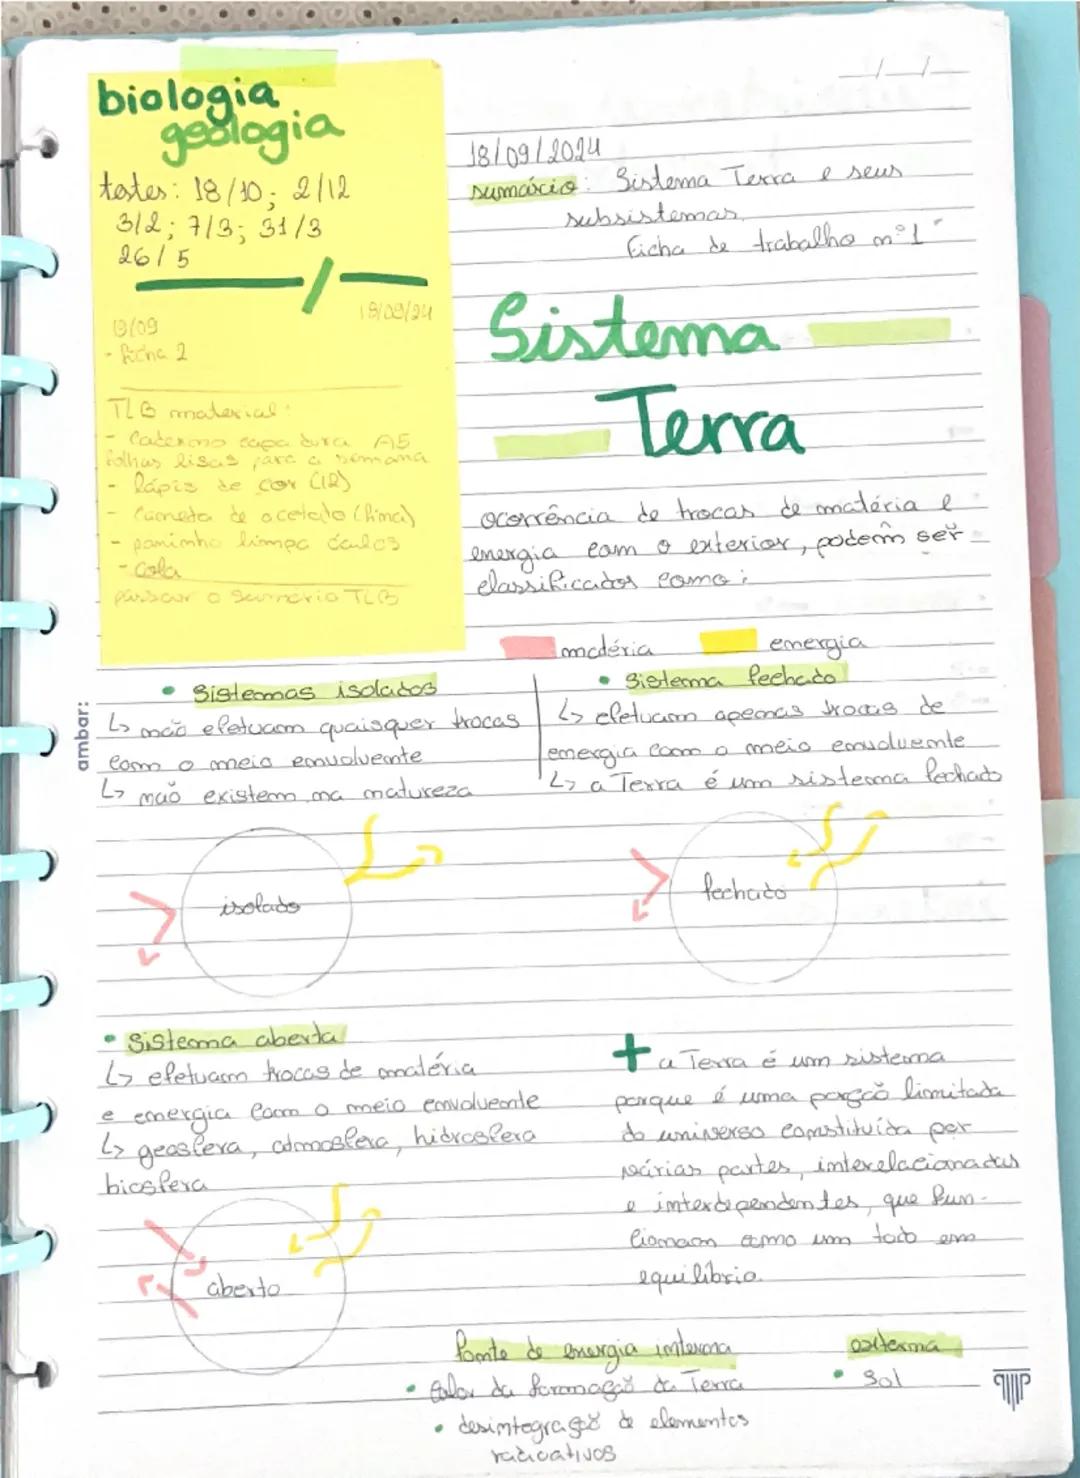 biologia
geologia
testes: 18/10; 2/12
3/2; 7/3; 31/3
26/5
18/09/24
19/09
- Ficha 2
TLB material:
- Caderno capa dura A5
folhas lisas para a semana
- lápis de cor (12)
- Caneta de acetato (fina)
- paninho limpa óculos
- cola
passar o sumário TLB
18/09/2024
sumário: Sistema Terra e seus
subsistemas.
Ficha de trabalho nº1
Sistema
Terra
ocorrência de trocas de matéria e
energia com o exterior, podem ser
classificados como:
matéria energia
• Sistemas isolados
↳ não efetuam quaisquer trocas
com o meio envolvente
↳ não existem na natureza
• Sistema fechado
↳ efetuam apenas trocas de
energia com o meio envolvente
↳ a Terra é um sistema fechado
isolado
fechado
• Sistema aberta
↳ efetuam trocas de matéria
e energia com o meio envolvente
↳ geosfera, atmosfera, hidrosfera
biosfera
aberto
+ a Terra é um sistema
porque é uma porção limitada
do universo constituída por
várias partes, interelacionadas
e interdependentes, que fun-
cionam como um todo em
equilíbrio.
Fonte de energia interna
• Calor da formação da Terra
• desintegração de elementos
radioativos
externa
• Sol
ambar: